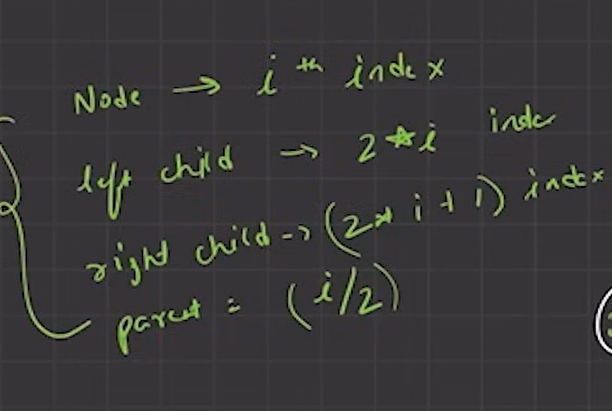 Node → i th index
left child → 2 * i index
right child → (2 * i + 1) index
parent = (i/2)